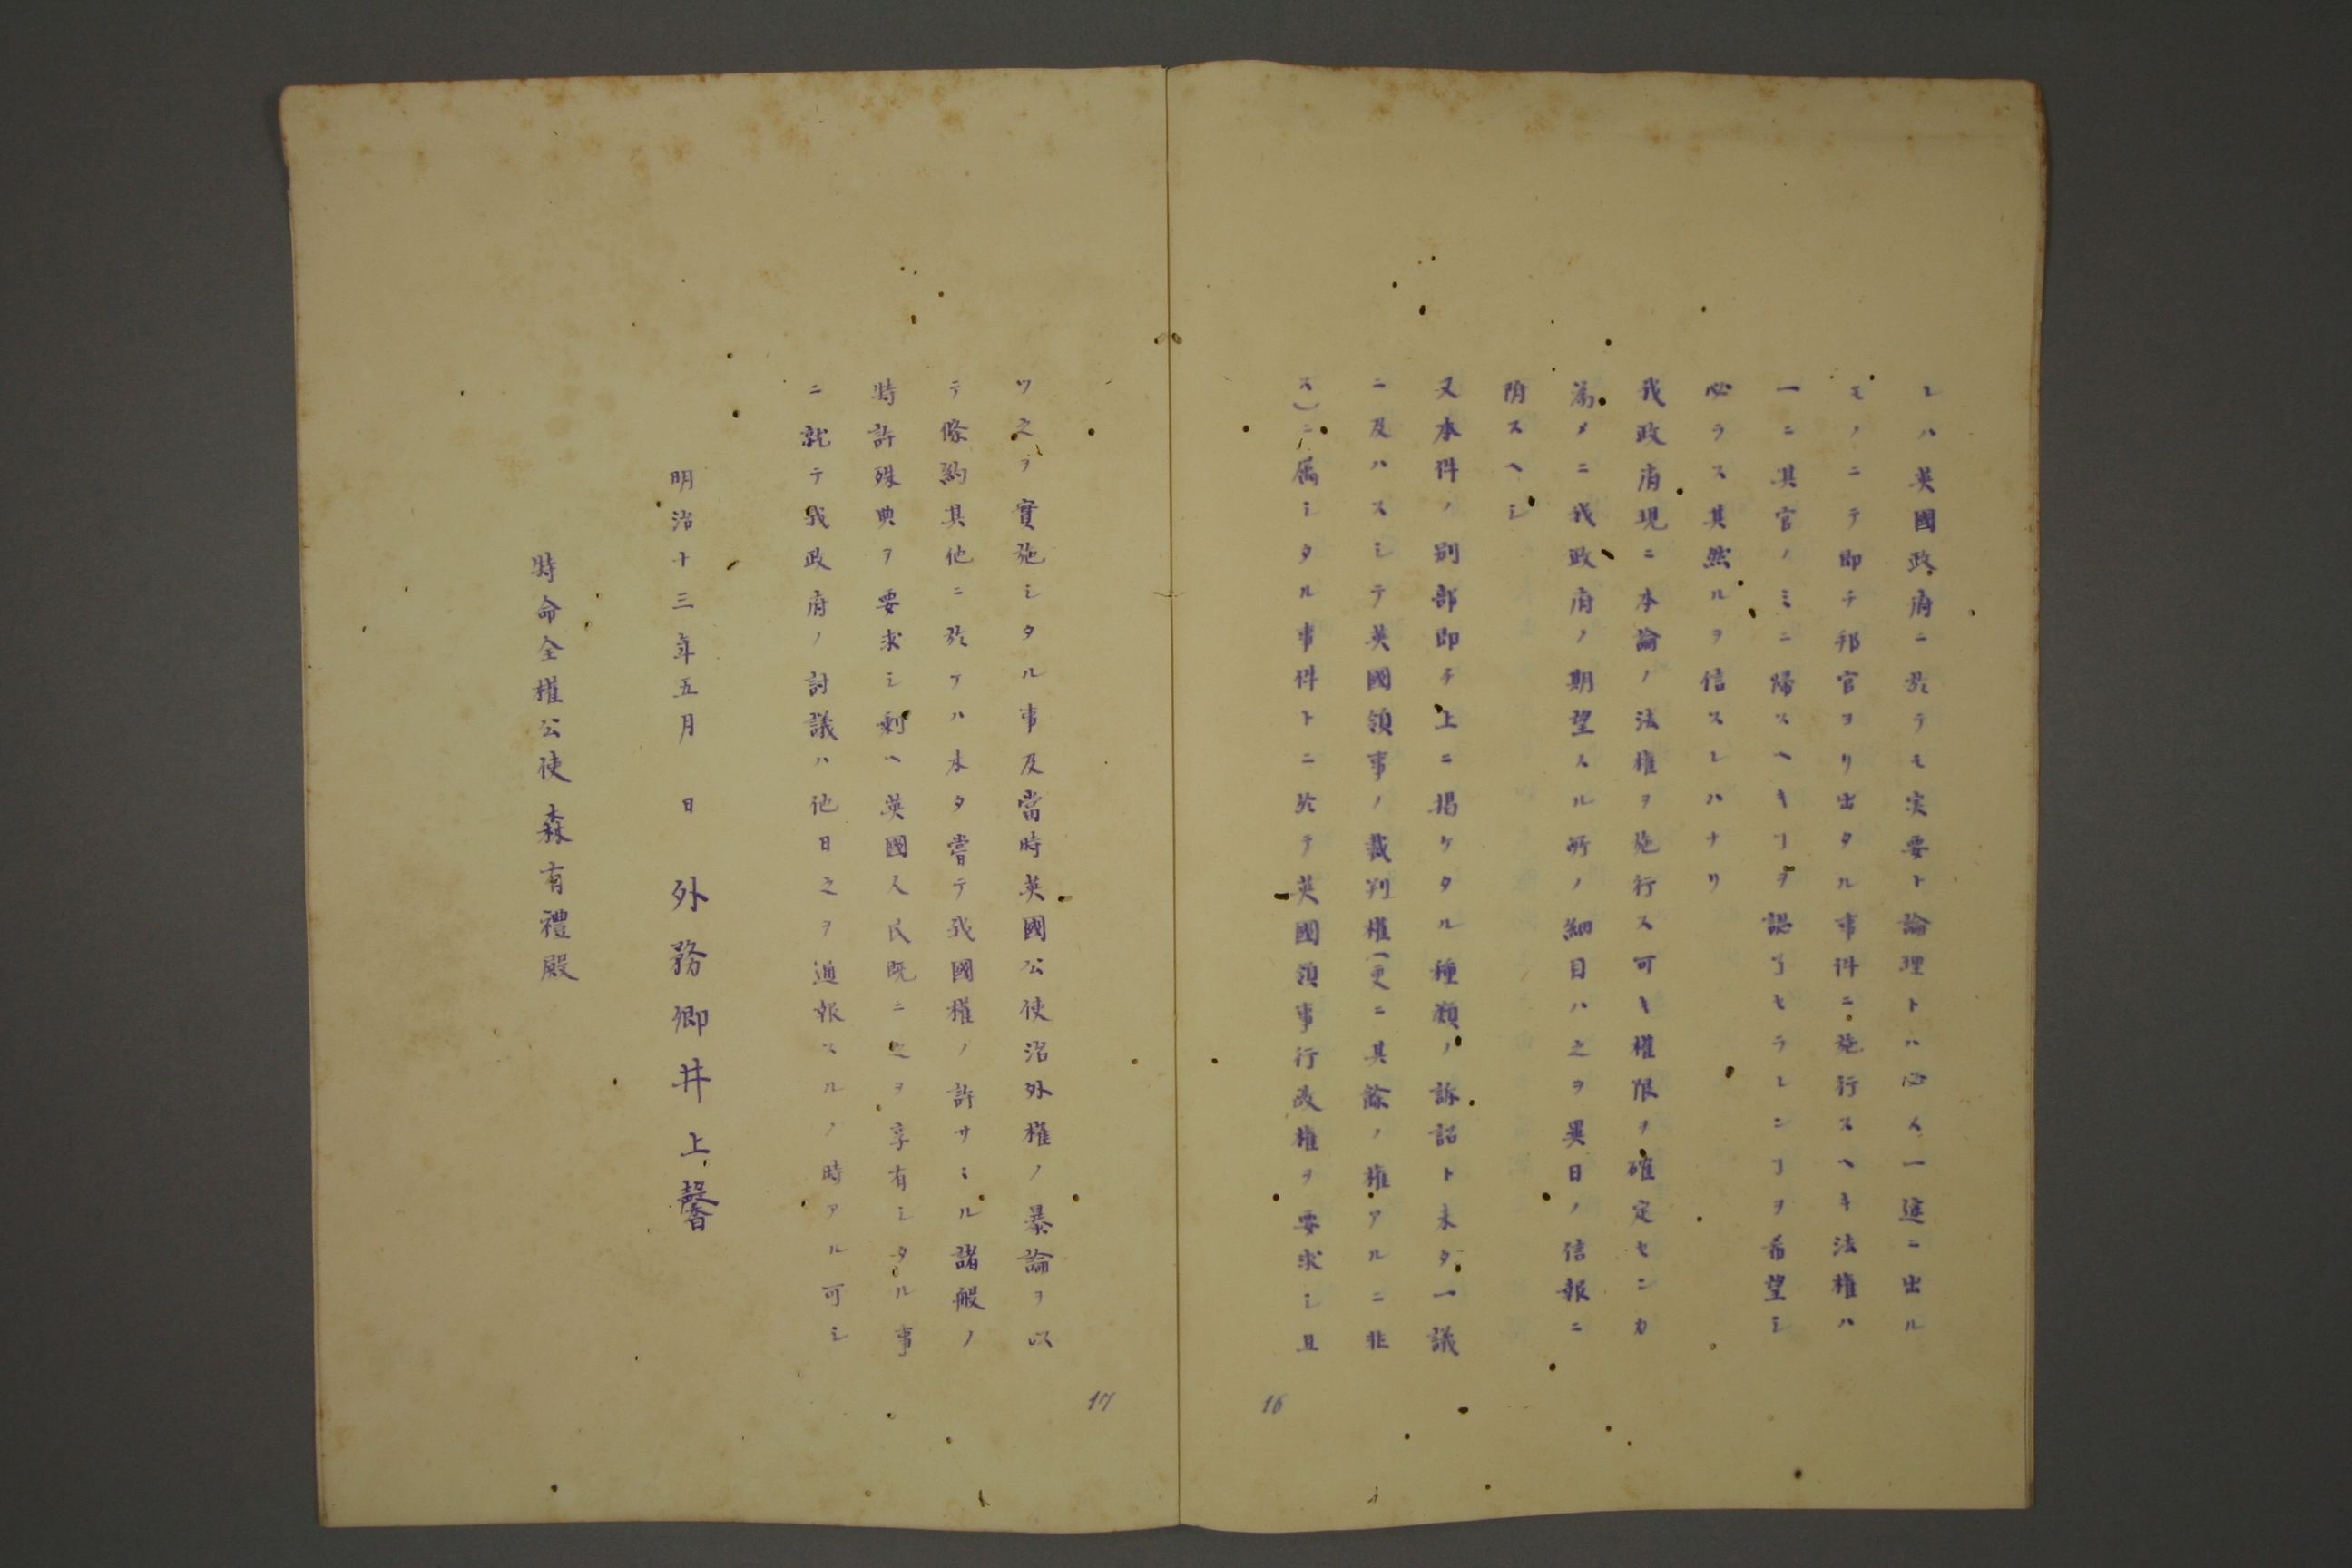 レハ英國政府ニ於テモ実要ト論理トハ必ス一途ニ出ル
モノニテ即チ邦官ヨリ出タル事件ニ施行スヘキ法権ハ
一ニ其官ノミニ歸スヘキヿヲ認了セラレンヿヲ希望シ
必ラス其然ルヲ信スレハナリ
我政府現ニ本論ノ法権ヲ施行ス可キ權限ヲ確定センカ
為メニ我政府ノ期望スル所ノ細目ハ之ヲ異日ノ信報ニ
附スヘシ
又本件ノ別部即チ上ニ掲ケタル種類ノ訴訟ト未タ一議
ニ及ハスシテ英國領事ノ裁判權(更ニ其餘ノ權アルニ非
ス)ニ属シタル事件トニ於テ英國領事行政權ヲ要求シ且
16
ツ之ヲ實施シタル事及當時英國公使治外權ノ暴論ヲ以
テ條約其他ニ於テハ未タ嘗テ我國權ノ許サヽル諸般ノ
特許殊典ヲ要求シ剰ヘ英國人民既ニ之ヲ享有シタル事
ニ就テ我政府ノ討議ハ他日之ヲ通報スルノ時アル可シ
明治十三年五月 日 外務卿井上馨
特命全權公使森有禮殿
17